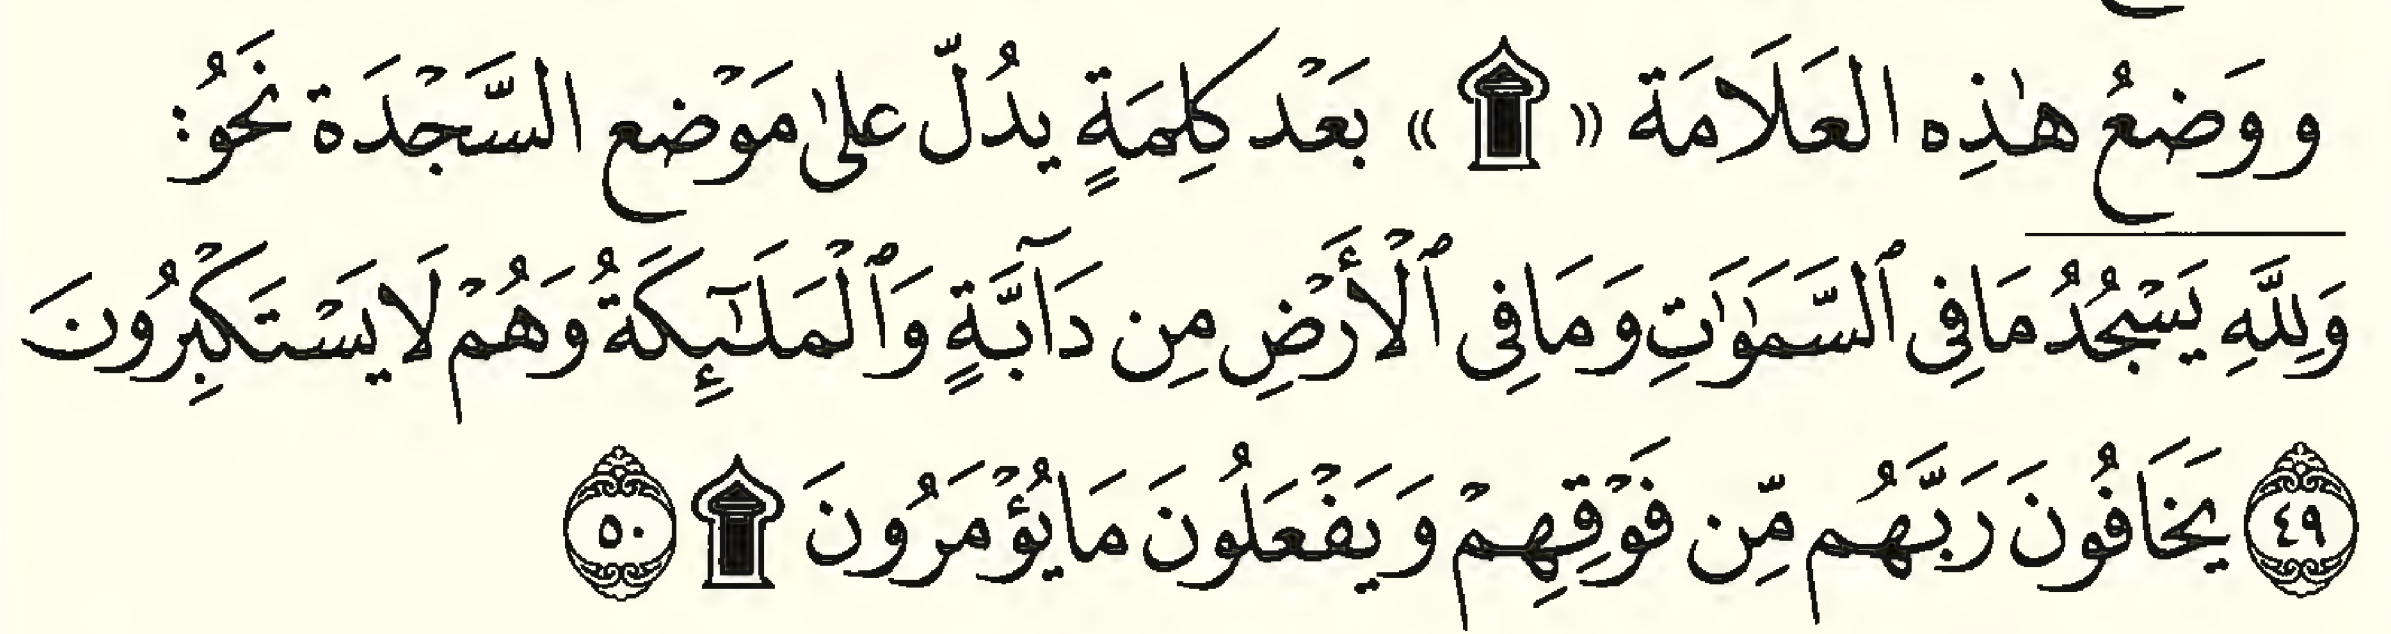 ووَضعُ هٰذِه العَلَامَة «۩» بَعْد كَلِمَةٍ يدُلّ علىٰ مَوْضع السَّجْدَة نَحْوُ:
وَلِلَّهِ يَسْجُدُ مَا فِى ٱلسَّمَٰوَٰتِ وَمَا فِى ٱلْأَرْضِ مِن دَآبَّةٍ وَٱلْمَلَٰٓئِكَةُ وَهُمْ لَا يَسْتَكْبِرُونَ
٤٩ يَخَافُونَ رَبَّهُم مِّن فَوْقِهِمْ وَيَفْعَلُونَ مَا يُؤْمَرُونَ ۩ ٥٠